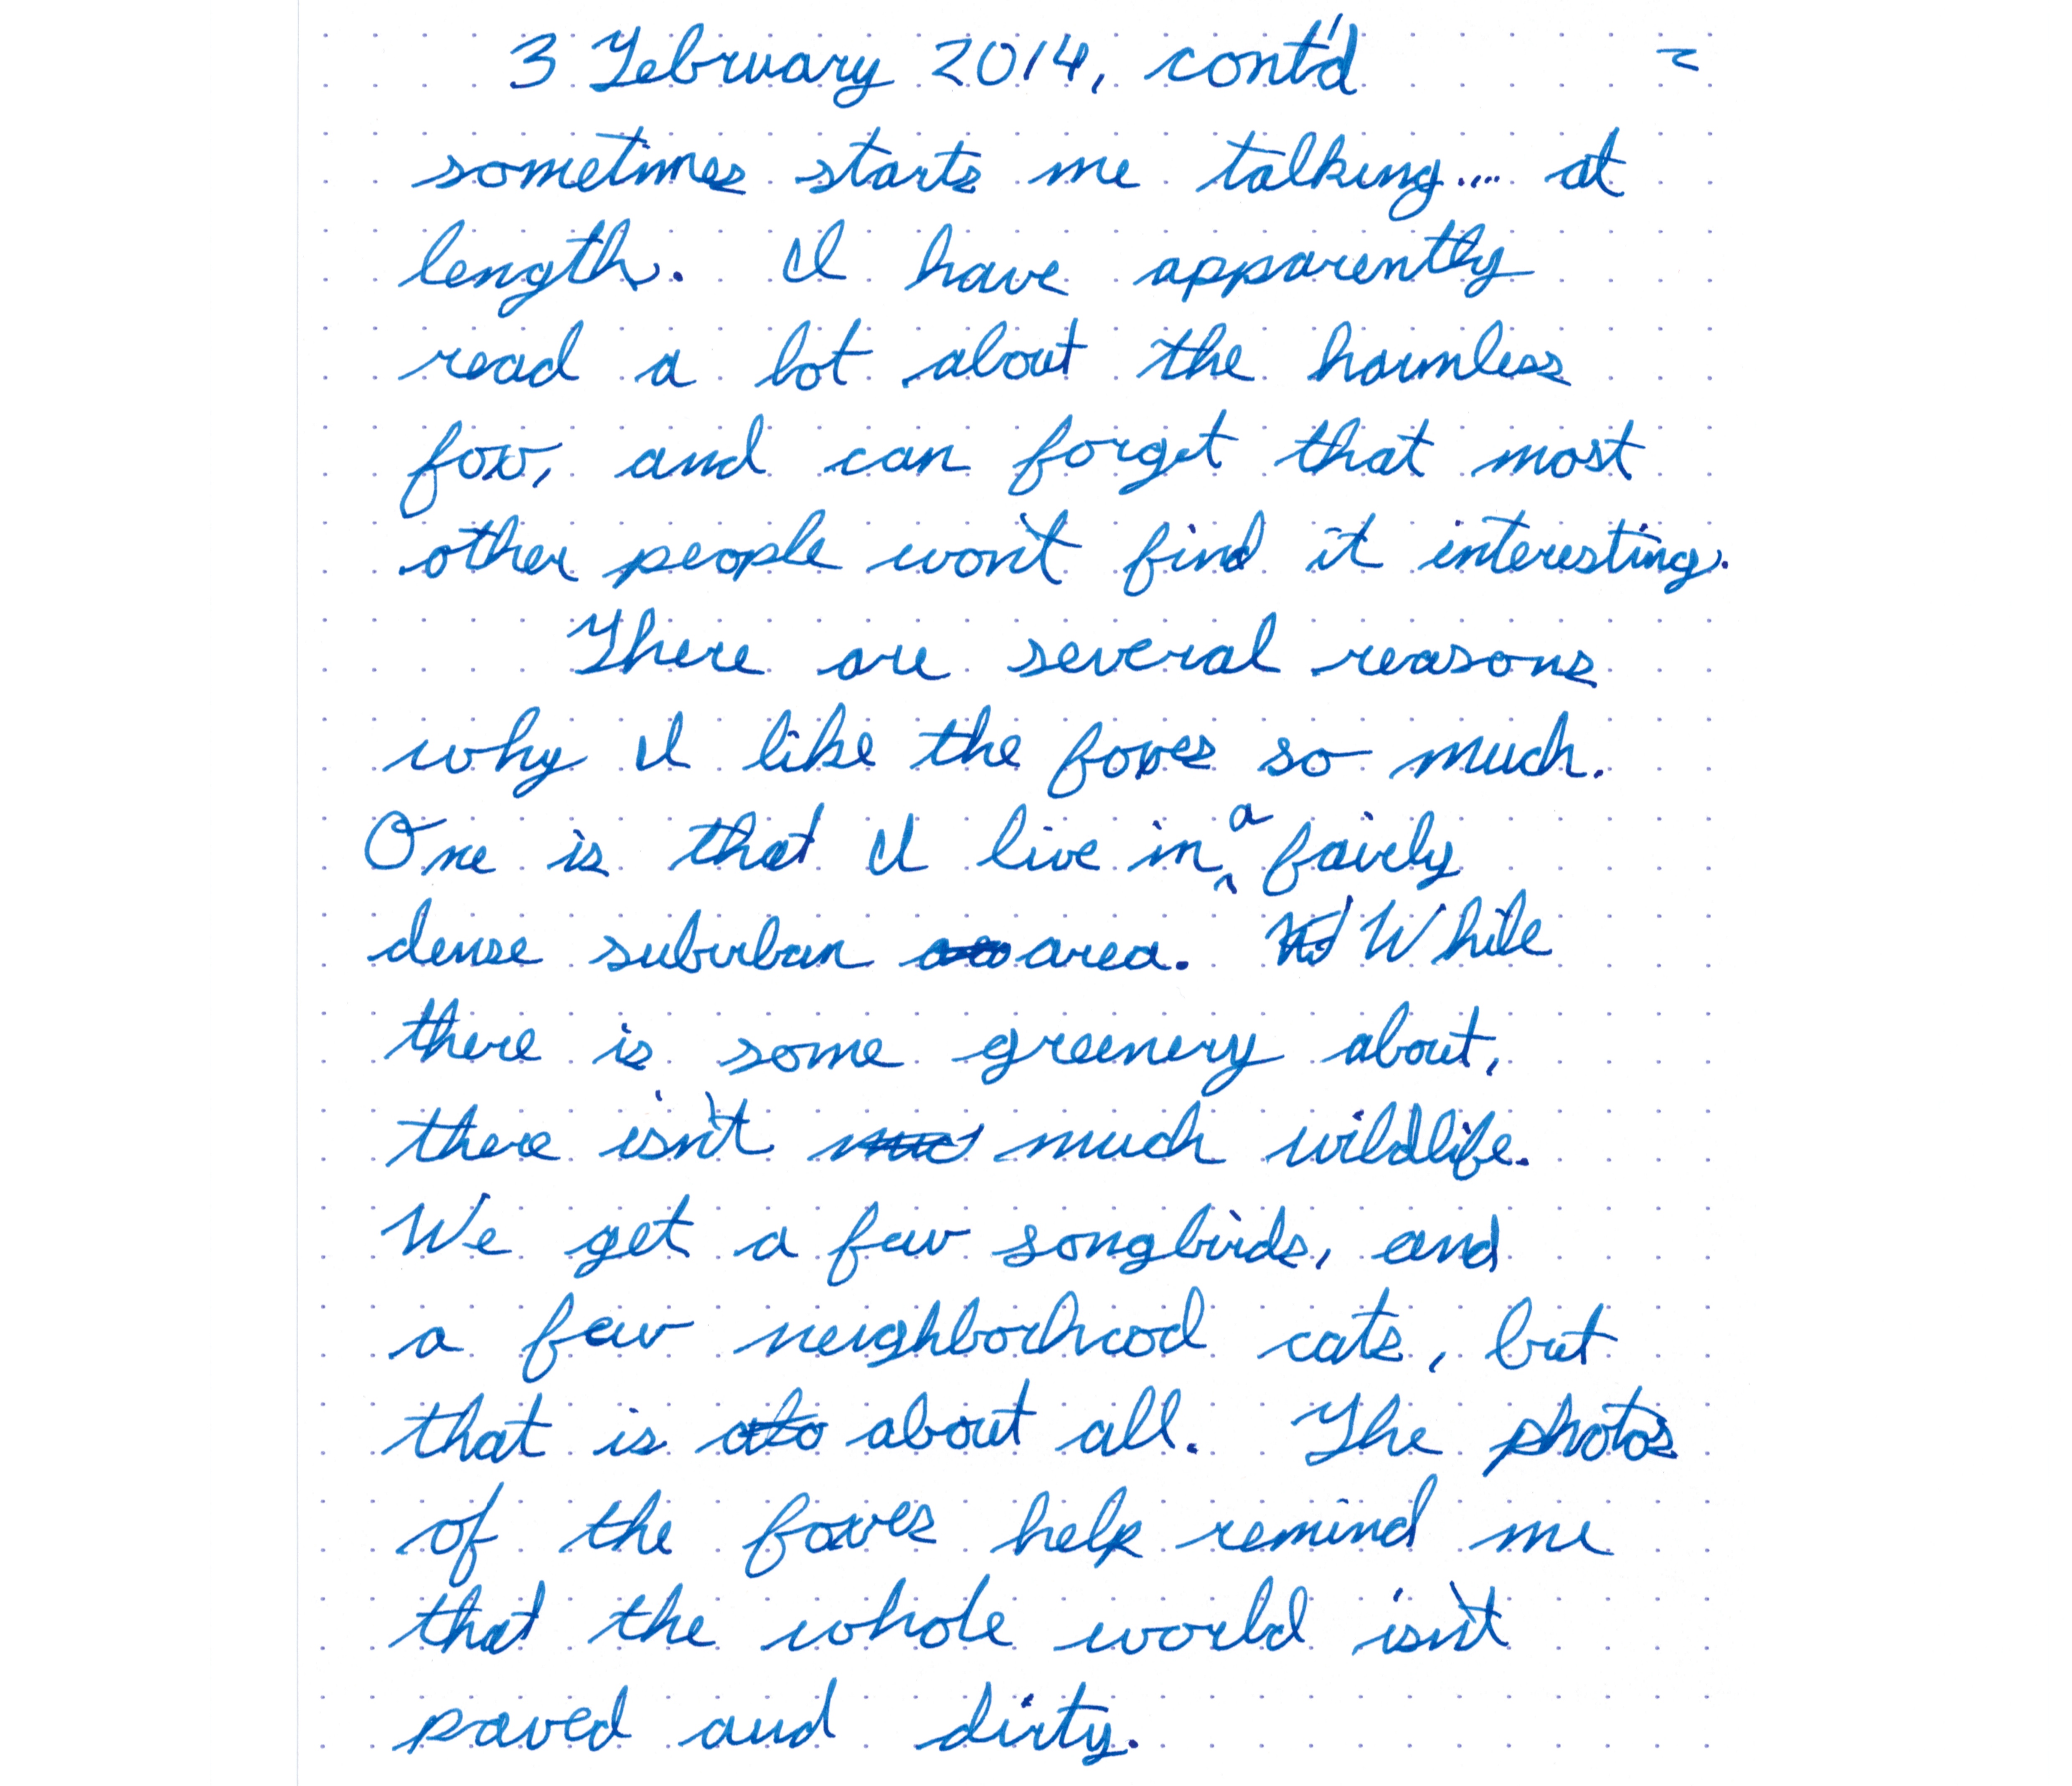 3 February 2014, cont'd 2
sometimes starts me talking... at
length. I have apparently
read a lot about the harmless
fox, and can forget that most
other people won't find it interesting.
There are several reasons
why I like the foxes so much.
One is that I live in a fairly
dense suburban area. While
there is some greenery about,
there isn't much wildlife.
We get a few songbirds, and
a few neighborhood cats, but
that is about all. The photos
of the foxes help remind me
that the whole world isn't
paved and dirty.